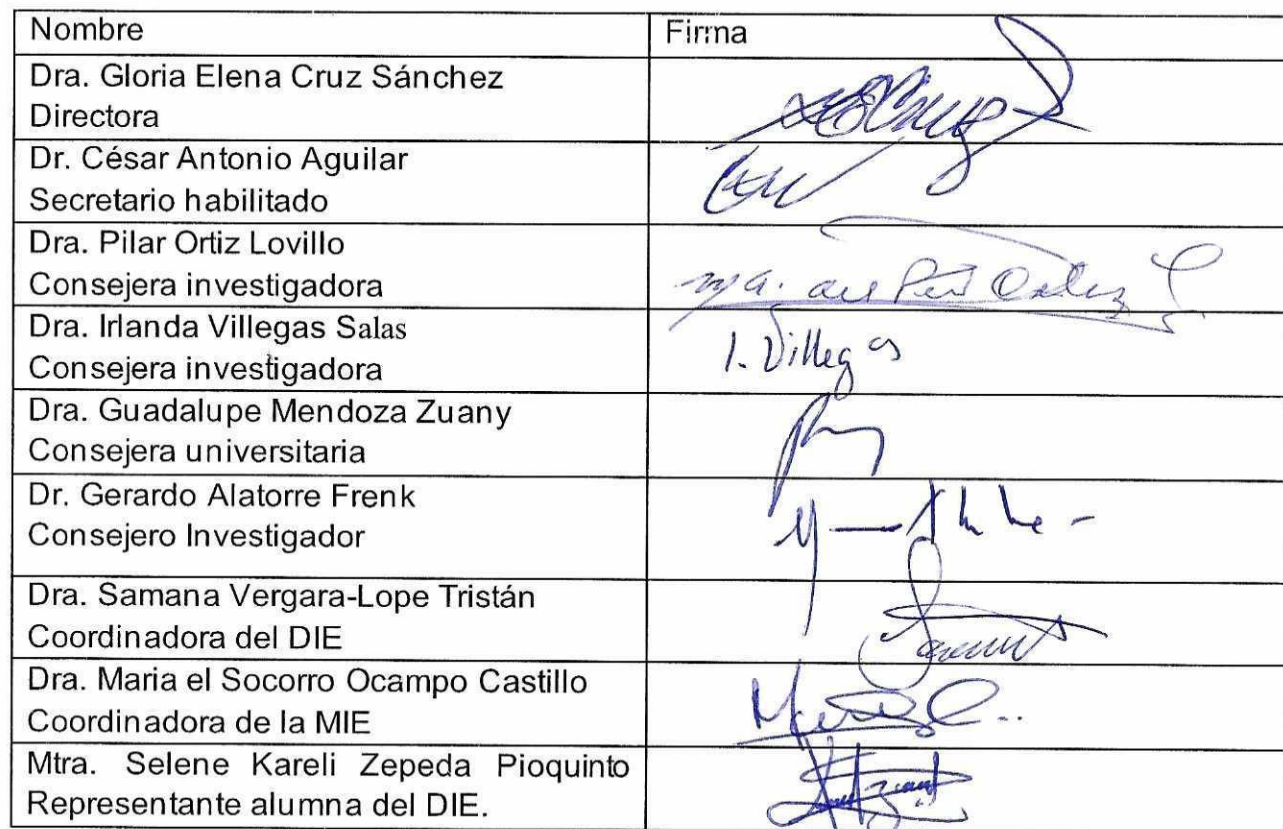 Nombre Firma
Dra. Gloria Elena Cruz Sánchez
Directora
Dr. César Antonio Aguilar
Secretario habilitado
Dra. Pilar Ortiz Lovillo
Consejera investigadora
Dra. Irlanda Villegas Salas
Consejera investigadora
I. Villegas
Dra. Guadalupe Mendoza Zuany
Consejera universitaria
Dr. Gerardo Alatorre Frenk
Consejero Investigador
Dra. Samana Vergara-Lope Tristán
Coordinadora del DIE
Dra. Maria el Socorro Ocampo Castillo
Coordinadora de la MIE
Mtra. Selene Kareli Zepeda Pioquinto
Representante alumna del DIE.